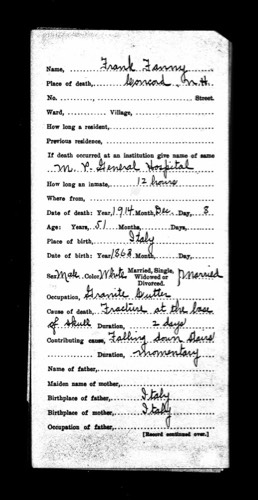 Name, Frank Fanny
Place of death, Concord N.H.
No. Street.
Ward, Village,
How long a resident,
Previous residence,
If death occurred at an institution give name of same
M. P. General Hospital
How long an inmate, 12 hours
Where from,
Date of death: Year, 1914 Month, Dec. Day, 8
Age: Years, 51 Months, Days,
Place of birth, Italy
Date of birth: Year, 1863 Month, Day,
Sex Male Color White Married, Single, Widowed or Divorced. Married
Occupation, Granite Cutter
Cause of death, Fracture at the base
of skull Duration, 2 days
Contributing cause, Falling down Stairs
Duration, momentary
Name of father,
Maiden name of mother,
Birthplace of father, Italy
Birthplace of mother, Italy
Occupation of father,
[Record continued over.]